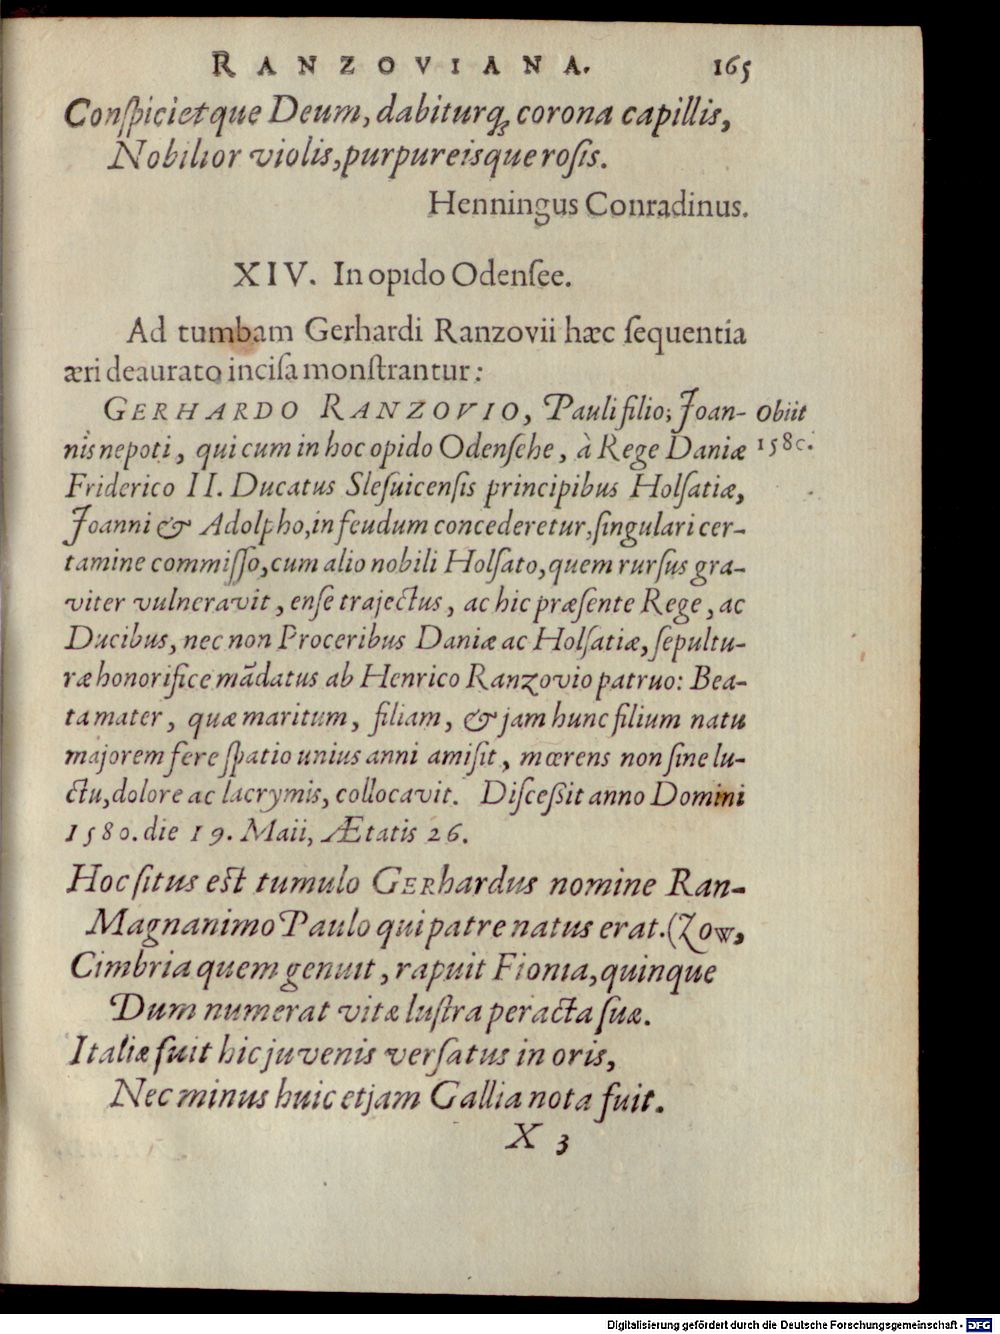 RANZOVIANA. 165
Conſpicietque Deum, dabiturq́; corona capillis,
Nobilior violis, purpureisque roſis.
Henningus Conradinus.
XIV. In opido Odenſee.
Ad tumbam Gerhardi Ranzovii hæc ſequentia
æri deaurato inciſa monſtrantur:
GERHARDO RANZOVIO, Pauli filio, Joan-
nis nepoti, qui cum in hoc opido Odenſehe, à Rege Daniæ
Friderico II. Ducatus Sleſuicenſis principibus Holſatiæ,
Joanni & Adolpho, in feudum concederetur, ſingulari cer-
tamine commiſſo, cum alio nobili Holſato, quem rurſus gra-
viter vulneravit, enſe trajectus, ac hic præſente Rege, ac
Ducibus, nec non Proceribus Daniæ ac Holſatiæ, ſepultu-
ræ honorifice mãdatus ab Henrico Ranzovio patruo: Bea-
ta mater, quæ maritum, filiam, & jam hunc filium natu
majorem fere ſpatio unius anni amiſit, mœrens non ſine lu-
ctu, dolore ac lacrymis, collocavit. Diſceſſit anno Domini
1580. die 19. Maii, Ætatis 26.
Obiit
1580.
Hoc ſitus est tumulo GERhardus nomine Ran-
Magnanimo Paulo qui patre natus erat. (Zow,
Cimbria quem genuit, rapuit Fionia, quinque
Dum numerat vitæ luſtra peracta ſuæ.
Italiæ fuit hic juvenis verſatus in oris,
Nec minus huic etjam Gallia nota fuit.
X 3
Digitalisierung gefördert durch die Deutsche Forschungsgemeinschaft - DFG